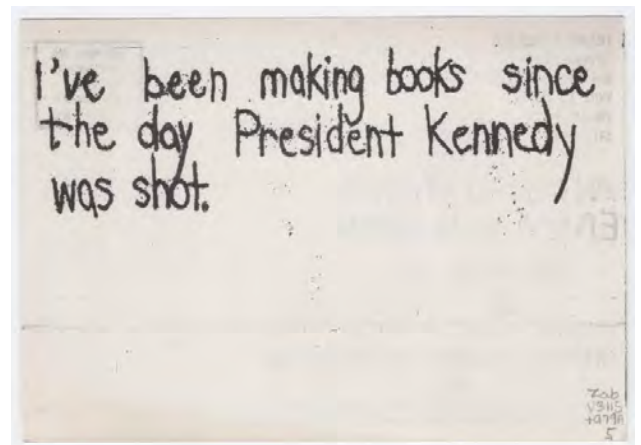 I've been making books since
the day President Kennedy
was shot.
Zab
V3115
+979A
5